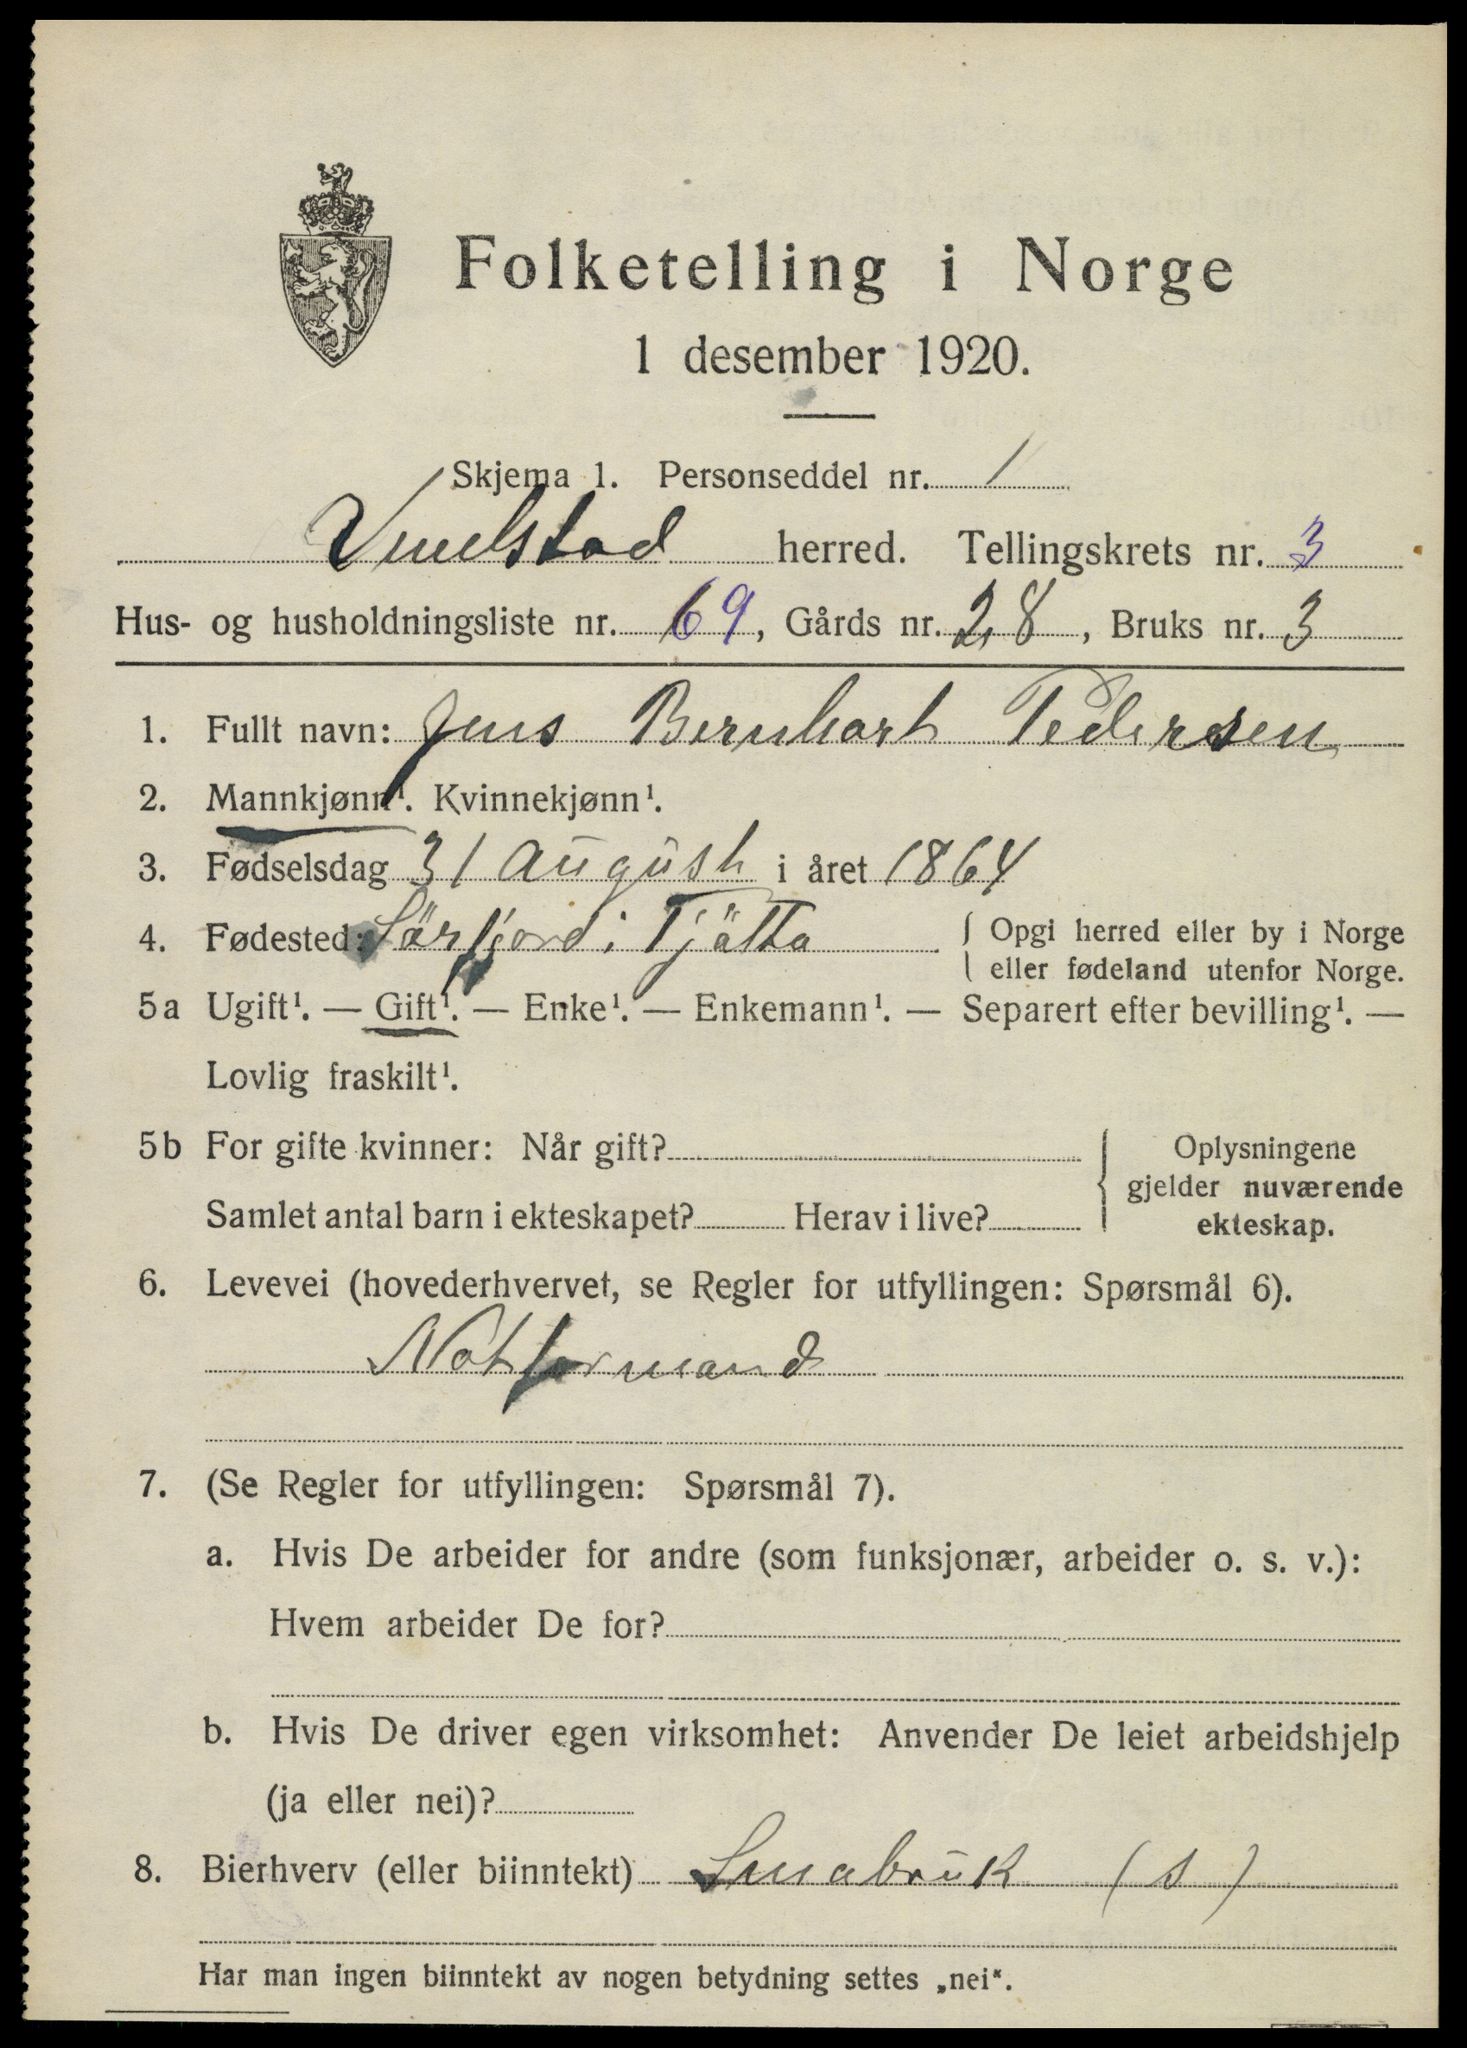 Folketelling i Norge
1 desember 1920.
Skjema 1. Personseddel nr. 1
Vevelstad herred. Tellingskrets nr. 3
Hus- og husholdningsliste nr. 69, Gårds nr. 28, Bruks nr. 3
1. Fullt navn: Jens Bernhart Pedersen
2. Mannkjønn¹. Kvinnekjønn¹.
3. Fødselsdag 31 August i året 1864
4. Fødested: Sörfjord i Tjötta { Opgi herred eller by i Norge
eller fødeland utenfor Norge.
5a Ugift¹. — Gift¹. — Enke¹. — Enkemann¹. — Separert efter bevilling¹. —
Lovlig fraskilt¹.
5b For gifte kvinner: Når gift?
Samlet antal barn i ekteskapet? Herav i live?
Oplysningene
gjelder nuværende
ekteskap.
6. Levevei (hovederhvervet, se Regler for utfyllingen: Spørsmål 6).
Notformand
7. (Se Regler for utfyllingen: Spørsmål 7).
a. Hvis De arbeider for andre (som funksjonær, arbeider o. s. v.):
Hvem arbeider De for?
b. Hvis De driver egen virksomhet: Anvender De leiet arbeidshjelp
(ja eller nei)?
8. Bierhverv (eller biinntekt) Smabruk (s)
Har man ingen biinntekt av nogen betydning settes „nei".